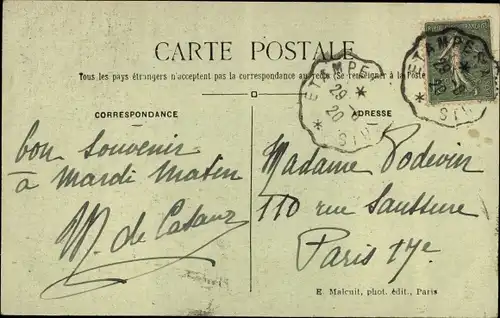 CARTE POSTALE
Tous les pays étrangers n'acceptent pas la correspondance au recto (Se renseigner à la Poste
CORRESPONDANCE
ADRESSE
ETAMPE
29
20
ETAMPE
20
Bon souvenir
à Mardi Maten
M. de
Madame Podevin
110 rue Saussure
Paris 17e
E. Malcuit, phot. édit., Paris